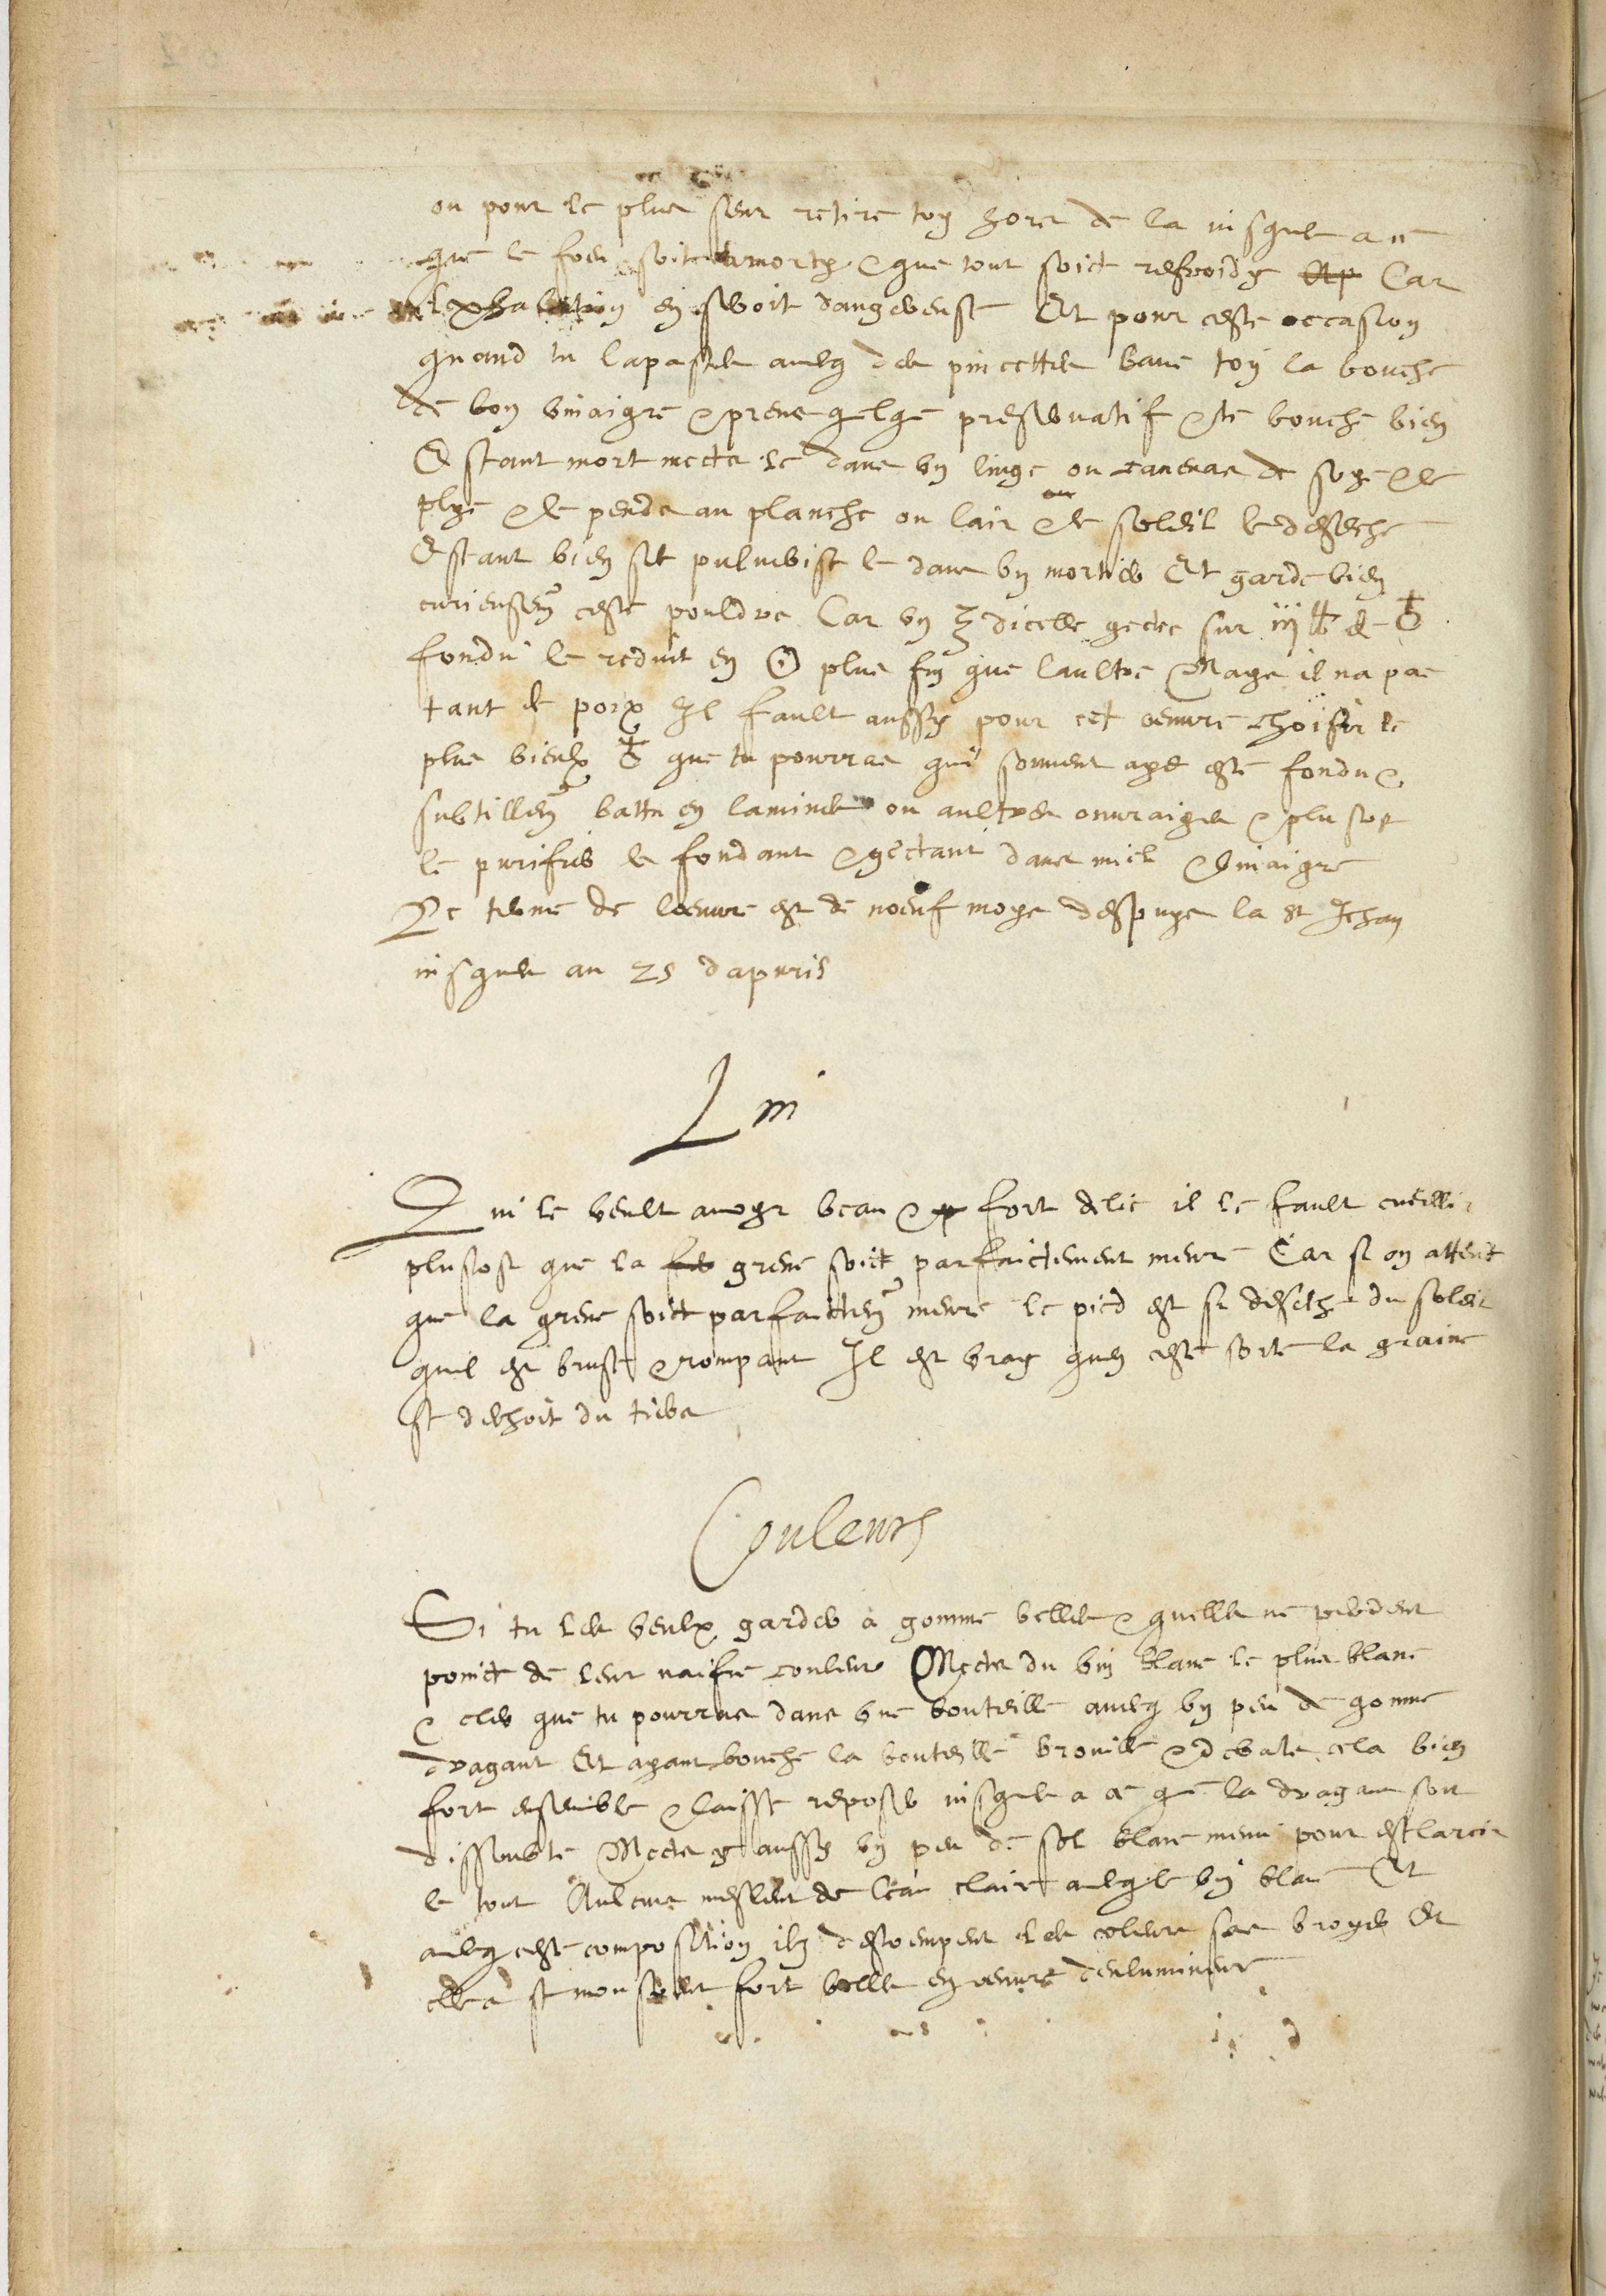 ou pour le plus seur retire toy hors de la jusques a ce
que le foeu soit amorty & que tout soict refroidy Car
lexhalation en seroit dangereuse Et pour ceste occasion
quand tu lapastes avecq des pincettes lave toy la bouche
de bon vinaigre & prens quelque preservatif & te bouche bien
Estant mort mects le dans un linge ou canevas de soye & le
plye & le pends au planche ou lair & le soleil le deseche
Estant bien sec pulverise le dans un mortier Et garde bien
curieusem{ent} ceste pouldre Car un ℥ dicelle gectee sur iij lb de ♁
fondu le reduit en ☉ plus fin que laultre Mays il na pas
tant de poix Il fault aussy pour cet oeuvre choisir le
plus vieulx ♁ que tu pourras qui souvent aye este fondu &
subtillem{ent} battu en lamines ou aultres ouvraiges & plustost
le purifier le fondant & gectant dans miel & vinaigre
Le terme de loeuvre est de noeuf moys despuys la St Jehan
jusques au 25 dapvril
Lin
Qui le veult avoyr beau & fort delie il le fault cueillir
plustost que la grene soict parfaictement meure Car si on attend
que la grene soict parfaictem{ent} meure le pied est si deseche du soleil
quil est brusc & rompant Il est vray quen ceste sorte la graine
se dechoit du tiers
Couleurs
Si tu les veulx garder a gomme belles & quelles ne perdent
poinct de leur naifve couleur Mects du vin blanc le plus blanc
& cler que tu pourras dans une bouteille avecq un peu de gomme
dragant Et ayant bouche la bouteille brouille & debats cela bien
fort ensemble & laisse reposer jusques a ce que la dragant soit
dissoulte Mects y aussy un peu de sel blanc menu pour esclarcir
le tout Aulcuns meslent de leau claire avecq le vin blanc Et
avecq ceste composition ilz destrempent les coleurs sans broyer Et
elles se monstrent fort belles en oeuvre denlumineur